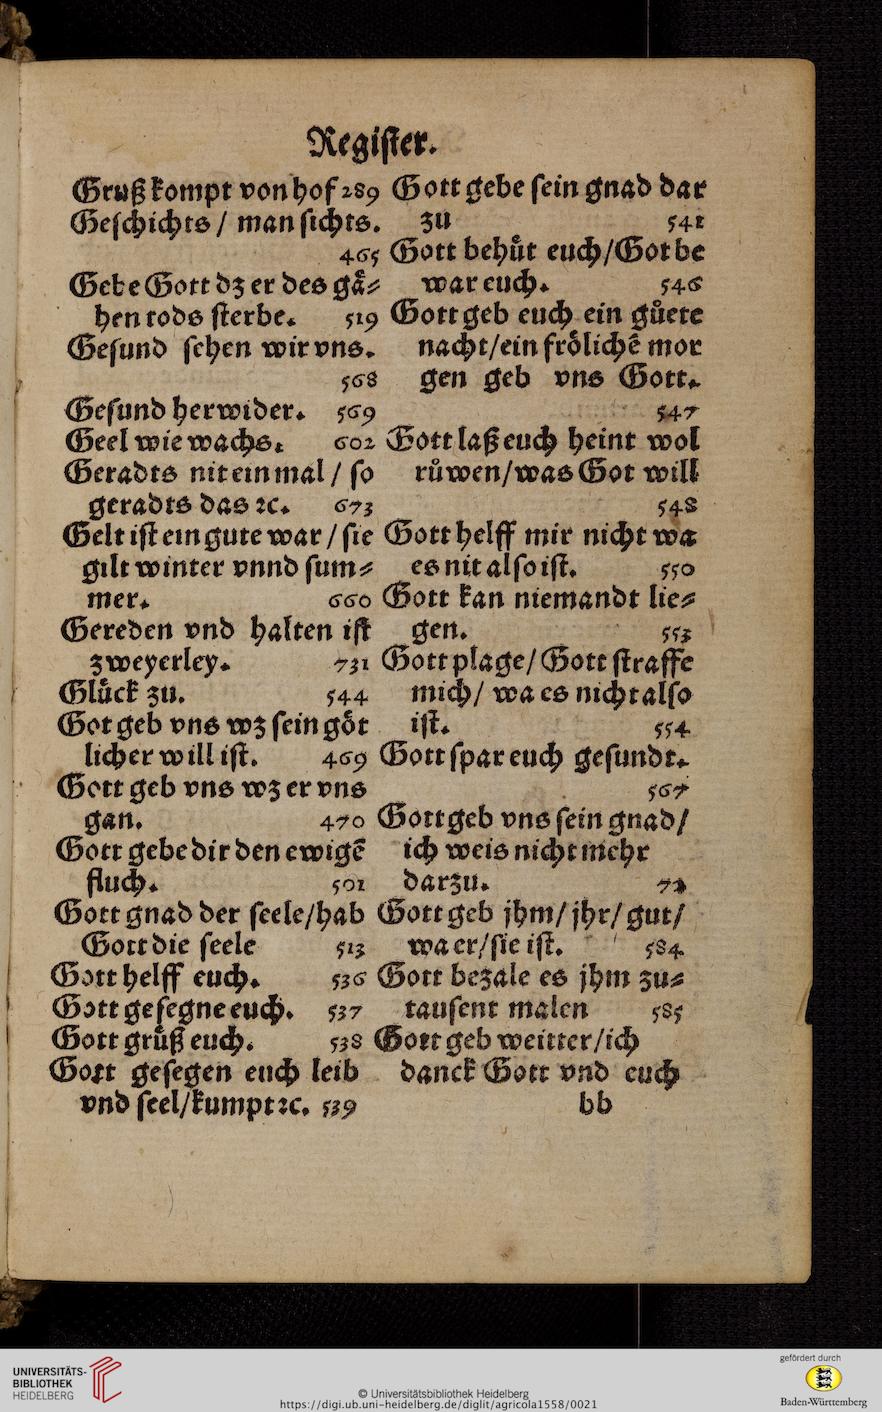 Register.
Gruß kompt von hof 289
Geschichts / man sichts.
465
Gebe Gott dz er des gå⸗
hen tods sterbe. 519
Gesund sehen wir vns.
568
Gesund herwider. 569
Geel wie wachs. 602
Geradts nit ein mal / so
geradts das ꝛc. 673
Gelt ist ein gute war / sie
gilt winter vnnd sum⸗
mer. 660
Gereden vnd halten ist
zweyerley. 731
Glůck zu. 544
Got geb vns wz sein gȯt
licher will ist. 469
Gott geb vns wz er vns
gan. 470
Gott gebe dir den ewigē
fluch. 501
Gott gnad der seele/hab
Gott die seele 513
Gott helff euch. 536
Gott gesegne euch. 537
Gott grůß euch. 538
Gott gesegen euch leib
vnd seel/kumpt ꝛc. 539
Gott gebe sein gnad dar
zu 541
Gott behůt euch/Got be
war euch. 546
Gott geb euch ein gůete
nacht/ein frȯlichē mor
gen geb vns Gott.
547
Gott laß euch heint wol
růwen/was Got will
548
Gott helff mir nicht wa
es nit also ist. 550
Gott kan niemandt lie⸗
gen. 553
Gott plage/Gott straffe
mich/ wa es nicht also
ist. 554
Gott spar euch gesundt.
567
Gott geb vns sein gnad/
ich weis nicht mehr
darzu.
Gott geb jhm/ jhr/ gut/
wa er/sie ist. 584
Gott bezale es jhm zu⸗
tausent malen 585
Gott geb weitter/ich
danck Gott vnd euch
bb
UNIVERSITÄTS-
BIBLIOTHEK
HEIDELBERG
© Universitätsbibliothek Heidelberg
https://digi.ub.uni-heidelberg.de/diglit/agricola1558/0021
gefördert durch
Baden-Württemberg